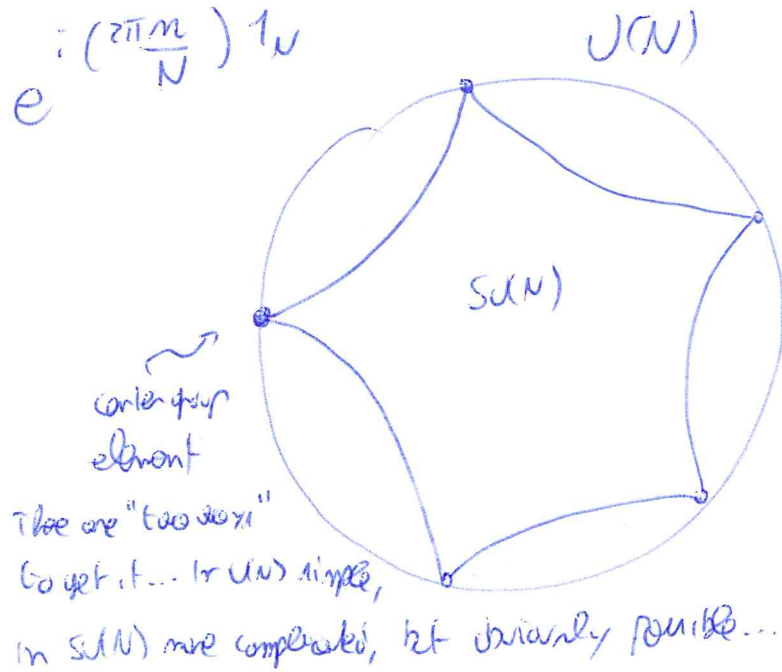 e^{i(2πn/N) 1_N}
U(N)
SU(N)
center group
element
There are "two ways"
to get it... In U(N) simple,
in SU(N) more complicated, but obviously possible...